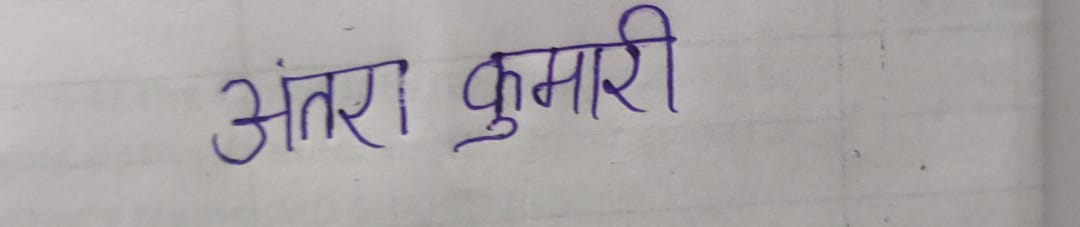 अंतरा कुमारी